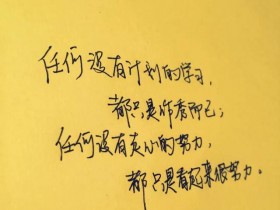 任何没有计划的学习，
都只是作秀而已；
任何没有走心的努力，
都只是看起来很努力。